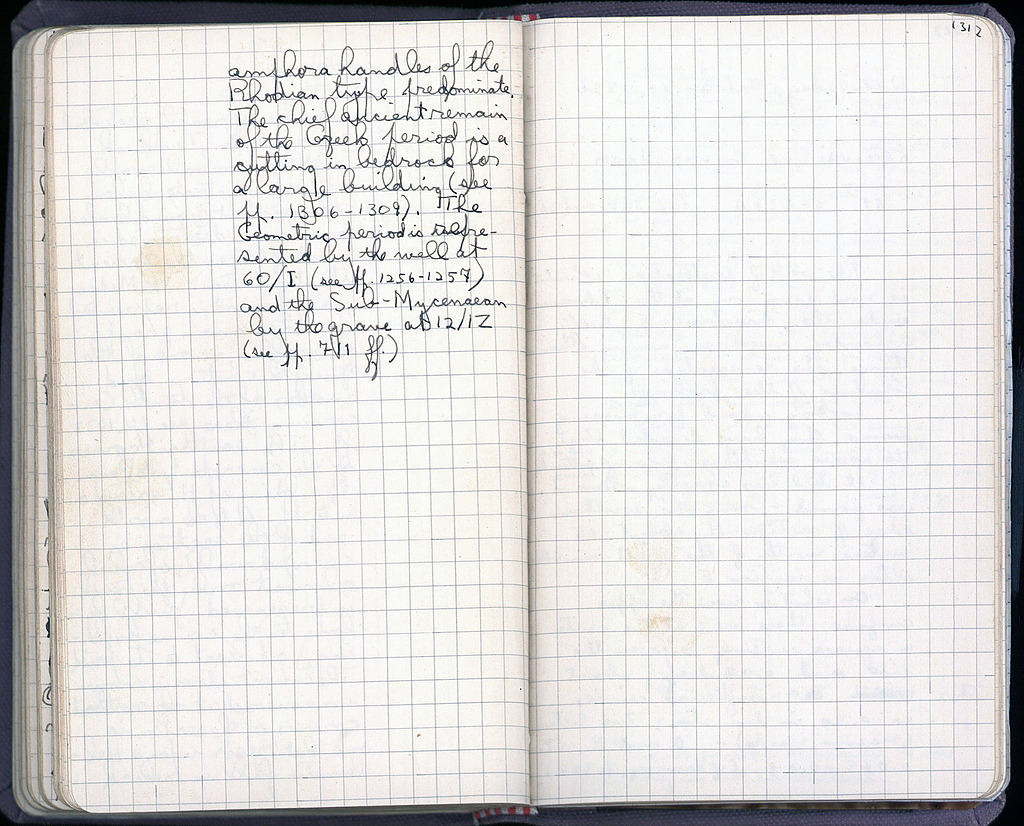 amphora handles of the
Rhodian type predominate.
The chief ancient remain
of the Greek period is a
cutting in bedrock for
a large building (see
pp. 1306-1309). The
Geometric period is repre-
sented by the well at
60/I (see pp. 1256-1257)
and the Sub-Mycenaean
by the grave at 12/IZ
(see pp. 711 ff.)
1312